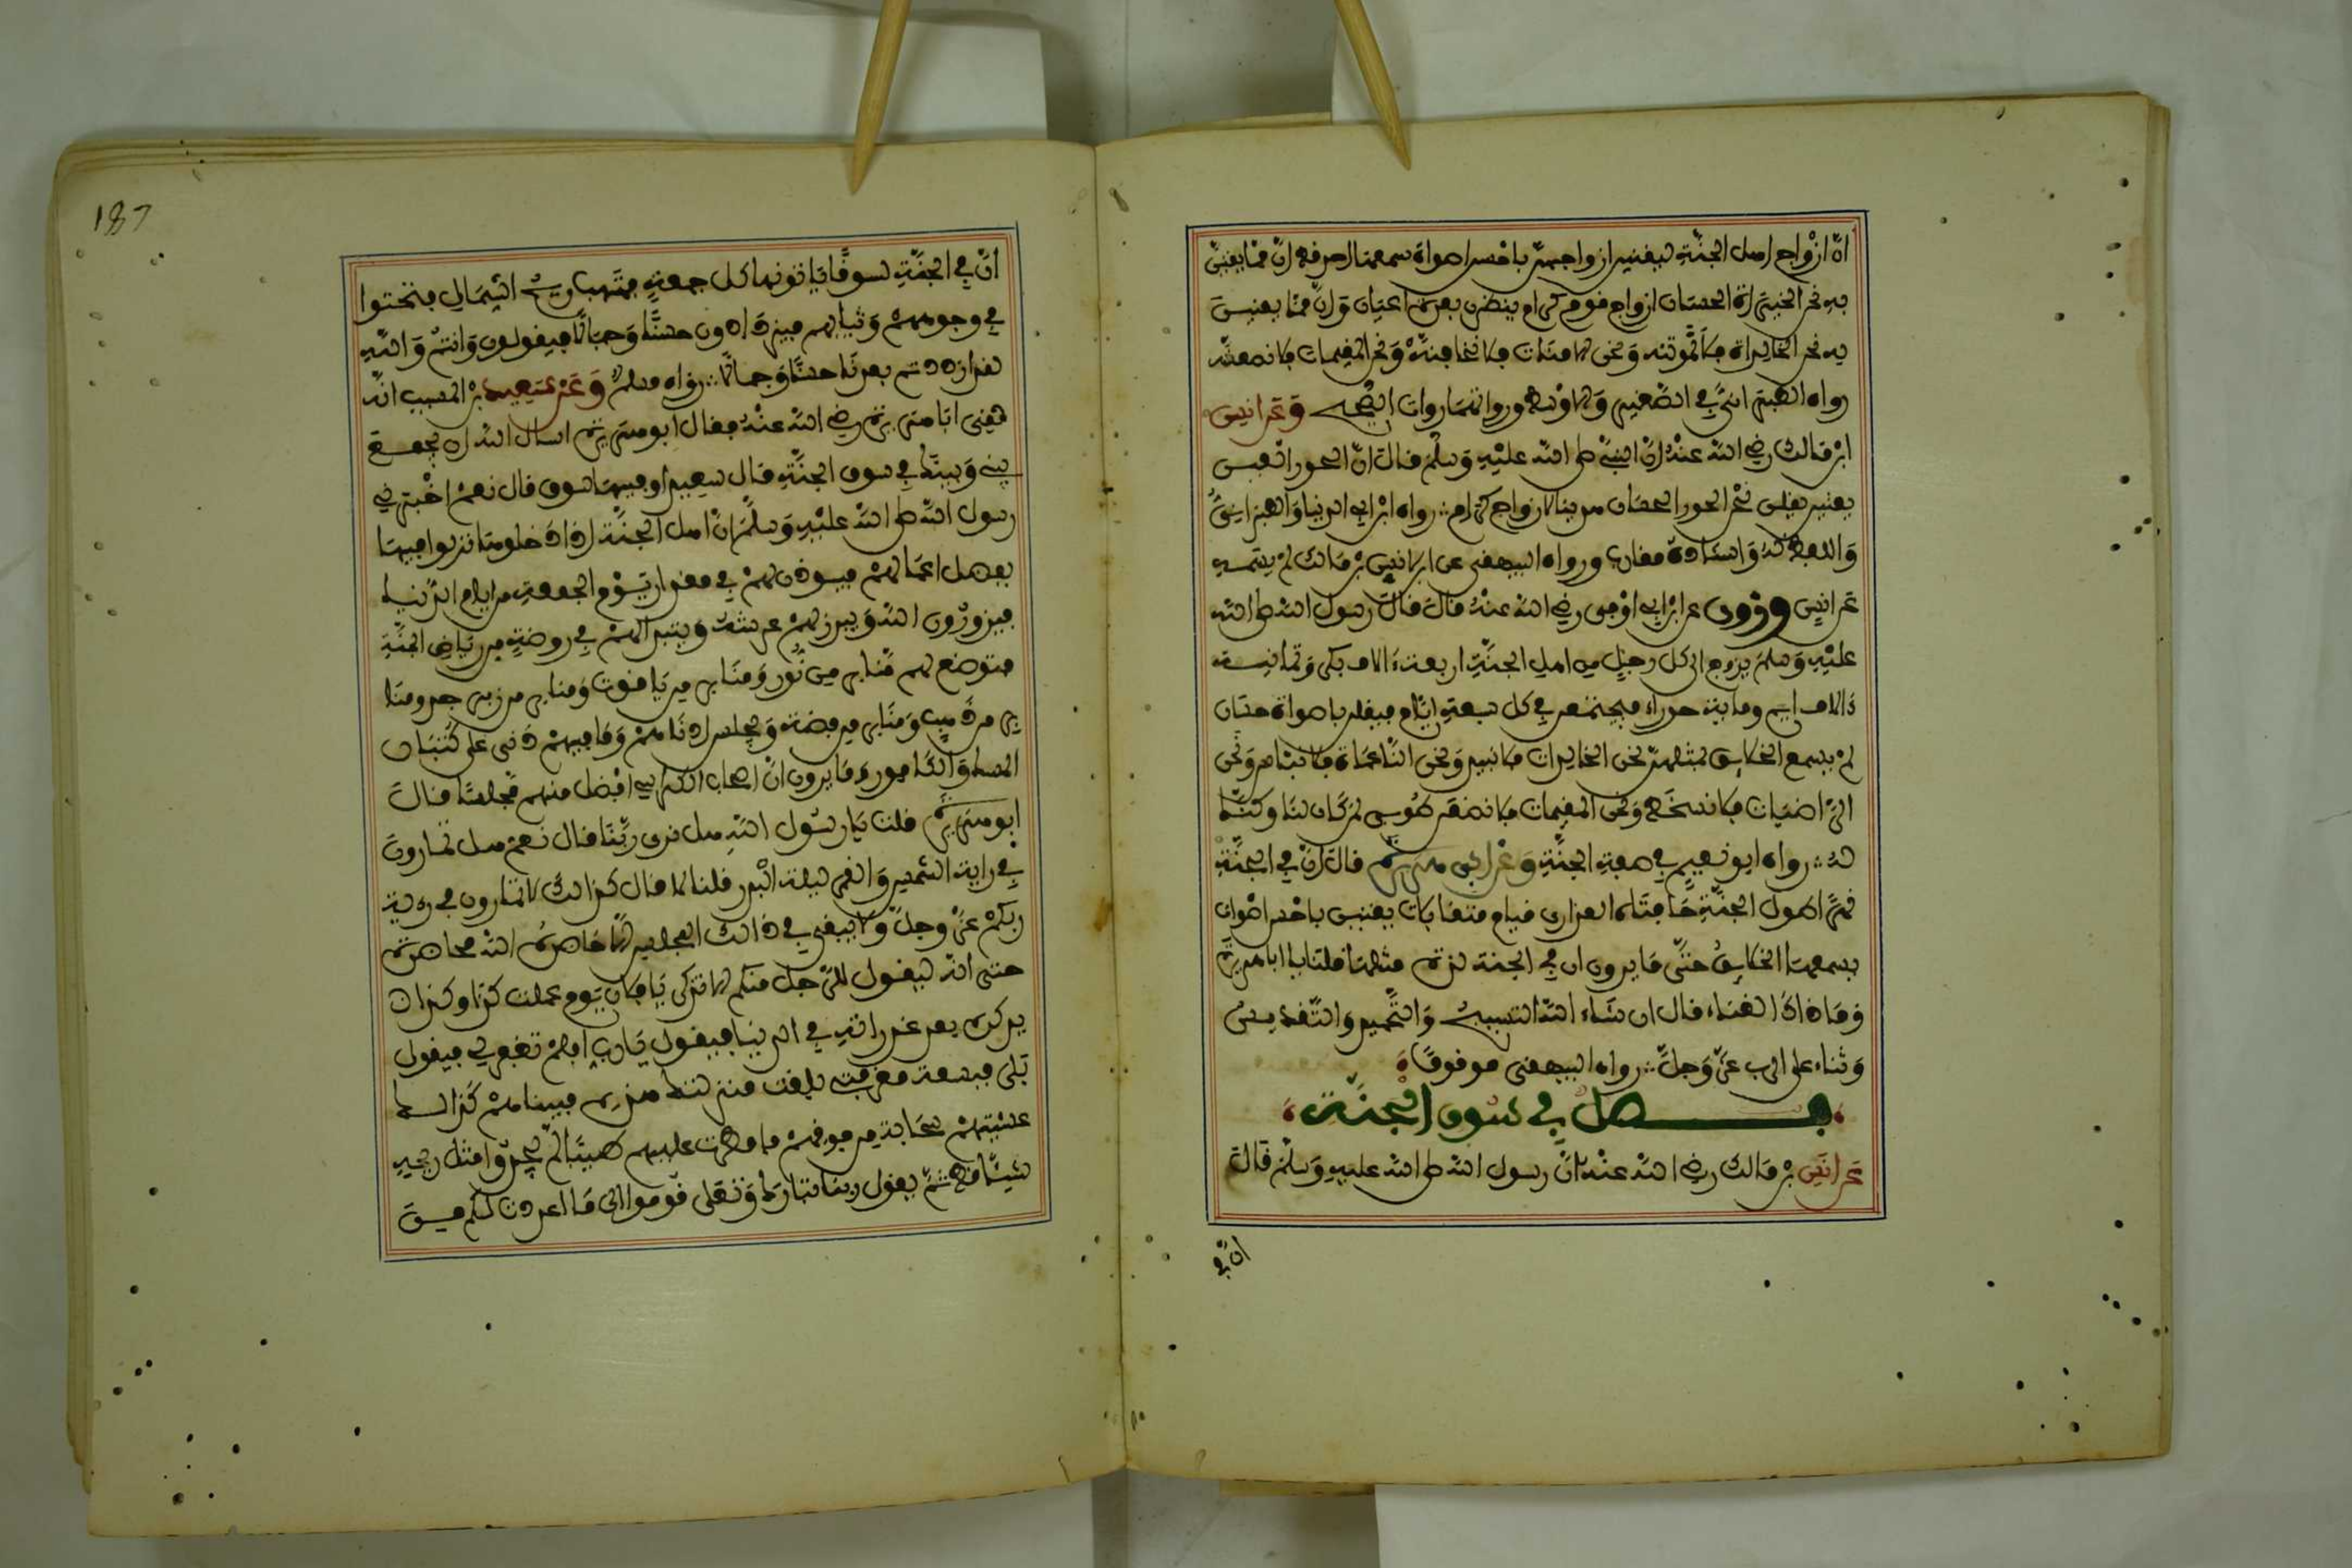 ان ازواج اهل الجنة ليغنين ازواجهن باحسن اصوات سمعها احد فط ان مما يغنين
به نحن الخيرات الحسان ازواج فوم كرام ينظرن بفرة اعيان وان مما يغنين
به نحن الخالدات فلا نموتنه ونحن الامنات فلا نخافنه ونحن المفيمات فلا نضعنه
رواه الطبراني في الصغير والاوسط ورواتهما روات الصحيح وعن انس
ابن مالك رضي الله عنه ان النبي صلى الله عليه وسلم فال ان الحور العين
يغنين يفلن نحن الحور الحسان هدينا لازواج كرام رواه ابن ابي الدنيا والطبراني
واللفظ له واسناده مفارب ورواه البيهفي عن ابن انس بن مالك لم يسمه
عن انس وروى عن ابن ابي اوفى رضي الله عنه فال فال رسول الله صلى الله
عليه وسلم يزوج الى كل رجل من اهل الجنة اربعة ءالاف بكر وثمانية
ءالاف ايم ومائة حوراء فيجتمعن في كل سبعة ايام فيفلن باصوات حسان
لم يسمع الخلايق بمثلهن نحن الخالدات فلا نبيد ونحن الناعمات فلا نبئس ونحن
الراضيات فلا نسخط ونحن المفيمات فلا نضعن طوبى لمن كان لنا وكنا
له رواه ابو نعيم في صفة الجنة وعن ابي هريرة فال ان في الجنة
نهرا طول الجنة حافتاه العذارى فيام متفابلات يغنين باحسن اصوات
يسمعها الخلايق حتى ما يرون ان في الجنة لذة مثلها فلنا يا ابا هريرة
وما ذاك الغناء فال ان شاء الله التسبيح والتحميد والتفديس
وثناء على الرب عز وجل رواه البيهفي موفوفا
فصل في سوف الجنة
عن انس بن مالك رضي الله عنه ان رسول الله صلى الله عليه وسلم فال
ان في
187
ان في الجنة لسوفا ياتونها كل جمعة فتهب ريح الشمال فتحثوا
في وجوههم وثيابهم فيزدادون حسنا وجمالا فيفولون وانتم والله
لفد ازددتم بعدنا حسنا وجمالا رواه مسلم وعن سعيد بن المسيب انه
لفي ابا هريرة رضي الله عنه ففال ابو هريرة اسال الله ان يجمع
بيني وبينك في سوف الجنة فال سعيد اوفيها سوف فال نعم اخبرني
رسول الله صلى الله عليه وسلم ان اهل الجنة اذا دخلوها نزلوا فيها
بفضل اعمالهم فيوذن لهم في مفدار يوم الجمعة من ايام الدنيا
فيزورون الله ويبرز لهم عرشه ويتبدا لهم في روضة من رياض الجنة
فتوضع لهم منابر من نور ومنابر من يافوت ومنابر من زبرجد ومنا
بر من ذهب ومنابر من فضة ويجلس ادناهم وما فيهم دني على كثبان
المسك والكافور وما يرون ان اصحاب الكراسي افضل منهم مجلسا فال
ابو هريرة فلت يا رسول الله هل نرى ربنا فال نعم هل تمارون
في راية الشمس والفمر ليلة البدر فلنا لا فال كذالك لا تمارون في روية
ربكم عز وجل ولا يبفى في ذالك المجلس الا حاضره الله محاضرة
حتى انه ليفول للرجل منكم الا تذكر يا فلان يوم عملت كذا وكذا
يذكره بعض غدراته في الدنيا فيفول يارب افلم تغفر لي فيفول
بلى فبسعة مغفرتي بلغت منزلتك هذه فبينما هم كذالك
غشيتهم سحابة من فوفهم فامطرت عليهم طيبا لم يجدوا مثل ريحه
شيئا فط ثم يفول ربنا تبارك وتعلى فوموا الى ما اعددت لكم من